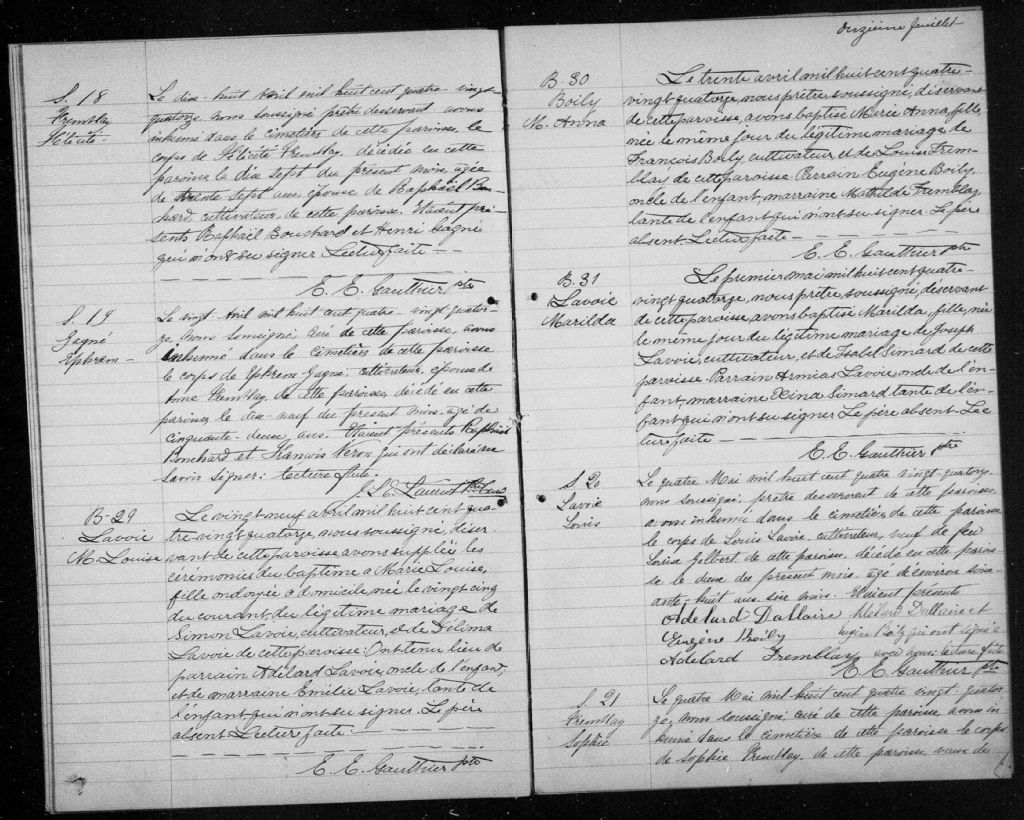 S. 18
Tremblay
Félicité
Le dix-huit avril mil huit cent quatre-vingt
quatorze nous soussigné prêtre desservant avons
inhumé dans le cimetière de cette paroisse le
corps de Félicité Tremblay, décédée en cette
paroisse le dix sept du present mois agée
de trente sept ans. épouse de Raphaël Bou-
chard cultivateur de cette paroisse. Etaient pré-
sents Raphaël Bouchard et Henri Gagné
qui n'ont su signer Lecture faite
E. E. Gauthier ptre
S. 19
Gagné
Ephrem
Le vingt Avril mil huit cent quatre-vingt quator-
ze, Nous soussigné, curé de cette paroisse, avons
inhumé dans le cimetière de cette paroisse
le corps de Ephrem Gagné, cultivateur, époux de
Anne Tremblay, de cette paroisse, décédé en cette
paroisse le dix-neuf du present mois agé de
cinquante-deux ans. Etaient présents Raphaël
Bouchard et François Néron qui ont déclaré ne
savoir signer. Lecture faite.
B-29
Lavoie
M. Louise
Le vingt neuf avril mil huit cent qua-
tre-vingt quatorze, nous soussigné, déser-
vant de cette paroisse avons supplée les
cérémonies du baptême a Marie Louise,
fille ondoyée a domicile née le vingt cinq
du courant, du légitime mariage de
Simon Lavoie, cultivateur, et de Zélima
Lavoie de cette paroisse. Ont tenu lieu de
parrain Adélard Lavoie, oncle de l'enfant,
et de marraine Emélie Lavoie, tante de
l'enfant qui n'ont su signer. Le père
absent Lecture faite.
E. E. Gauthier ptre
Onzième feuillet
B-30
Boily
M. Anna
Le trente avril mil huit cent quatre-
vingt quatorze, nous prêtre soussigné, déservant
de cette paroisse, avons baptisé Marie Anna, fille,
née le même jour du légitime mariage de
François Boily, cultivateur, et de Louise Trem-
blay de cette paroisse. Parrain Eugène Boily,
oncle de l'enfant, marraine Mathilde Tremblay,
tante de l'enfant qui n'ont su signer. Le père
absent Lecture faite
E. E. Gauthier ptre
B. 31
Lavoie
Marilda
Le premier mai mil huit cent quatre-
vingt quatorze, nous prêtre soussigné, déservant
de cette paroisse, avons baptisé Marilda, fille, née
le même jour du légitime mariage de Joseph
Lavoie, cultivateur, et de Isabel Simard de cette
paroisse. Parrain Armias Lavoie oncle de l'en-
fant, marraine Exina Simard tante de l'en-
fant qui n'ont su signer Le père absent Lec-
ture faite
E. E. Gauthier ptre
S. 20
Lavoie
Louis
Le quatre Mai mil huit cent quatre vingt-quatorze
nous soussigné prêtre desservant de cette paroisse,
avons inhumé dans le cimetière de cette paroisse
le corps de Louis Lavoie, cultivateur, veuf de feu
Louise Gilbert de cette paroisse, décédé en cette parois-
se le deux du present mois, agé d'environ soix-
ante-huit ans six mois. Etaient présents
Adelard Dallaire Adelard Dallaire et
Eugène Boily Eugène Boily qui ont signé
Adelard Tremblay avec nous lecture faite
E. E. Gauthier ptre
S. 21
Tremblay
Sophie
Le quatre Mai mil huit cent quatre vingt-quator-
ze, nous soussigné curé de cette paroisse avons in-
humé dans le cimetière de cette paroisse le corps
de Sophie Tremblay, de cette paroisse, veuve de